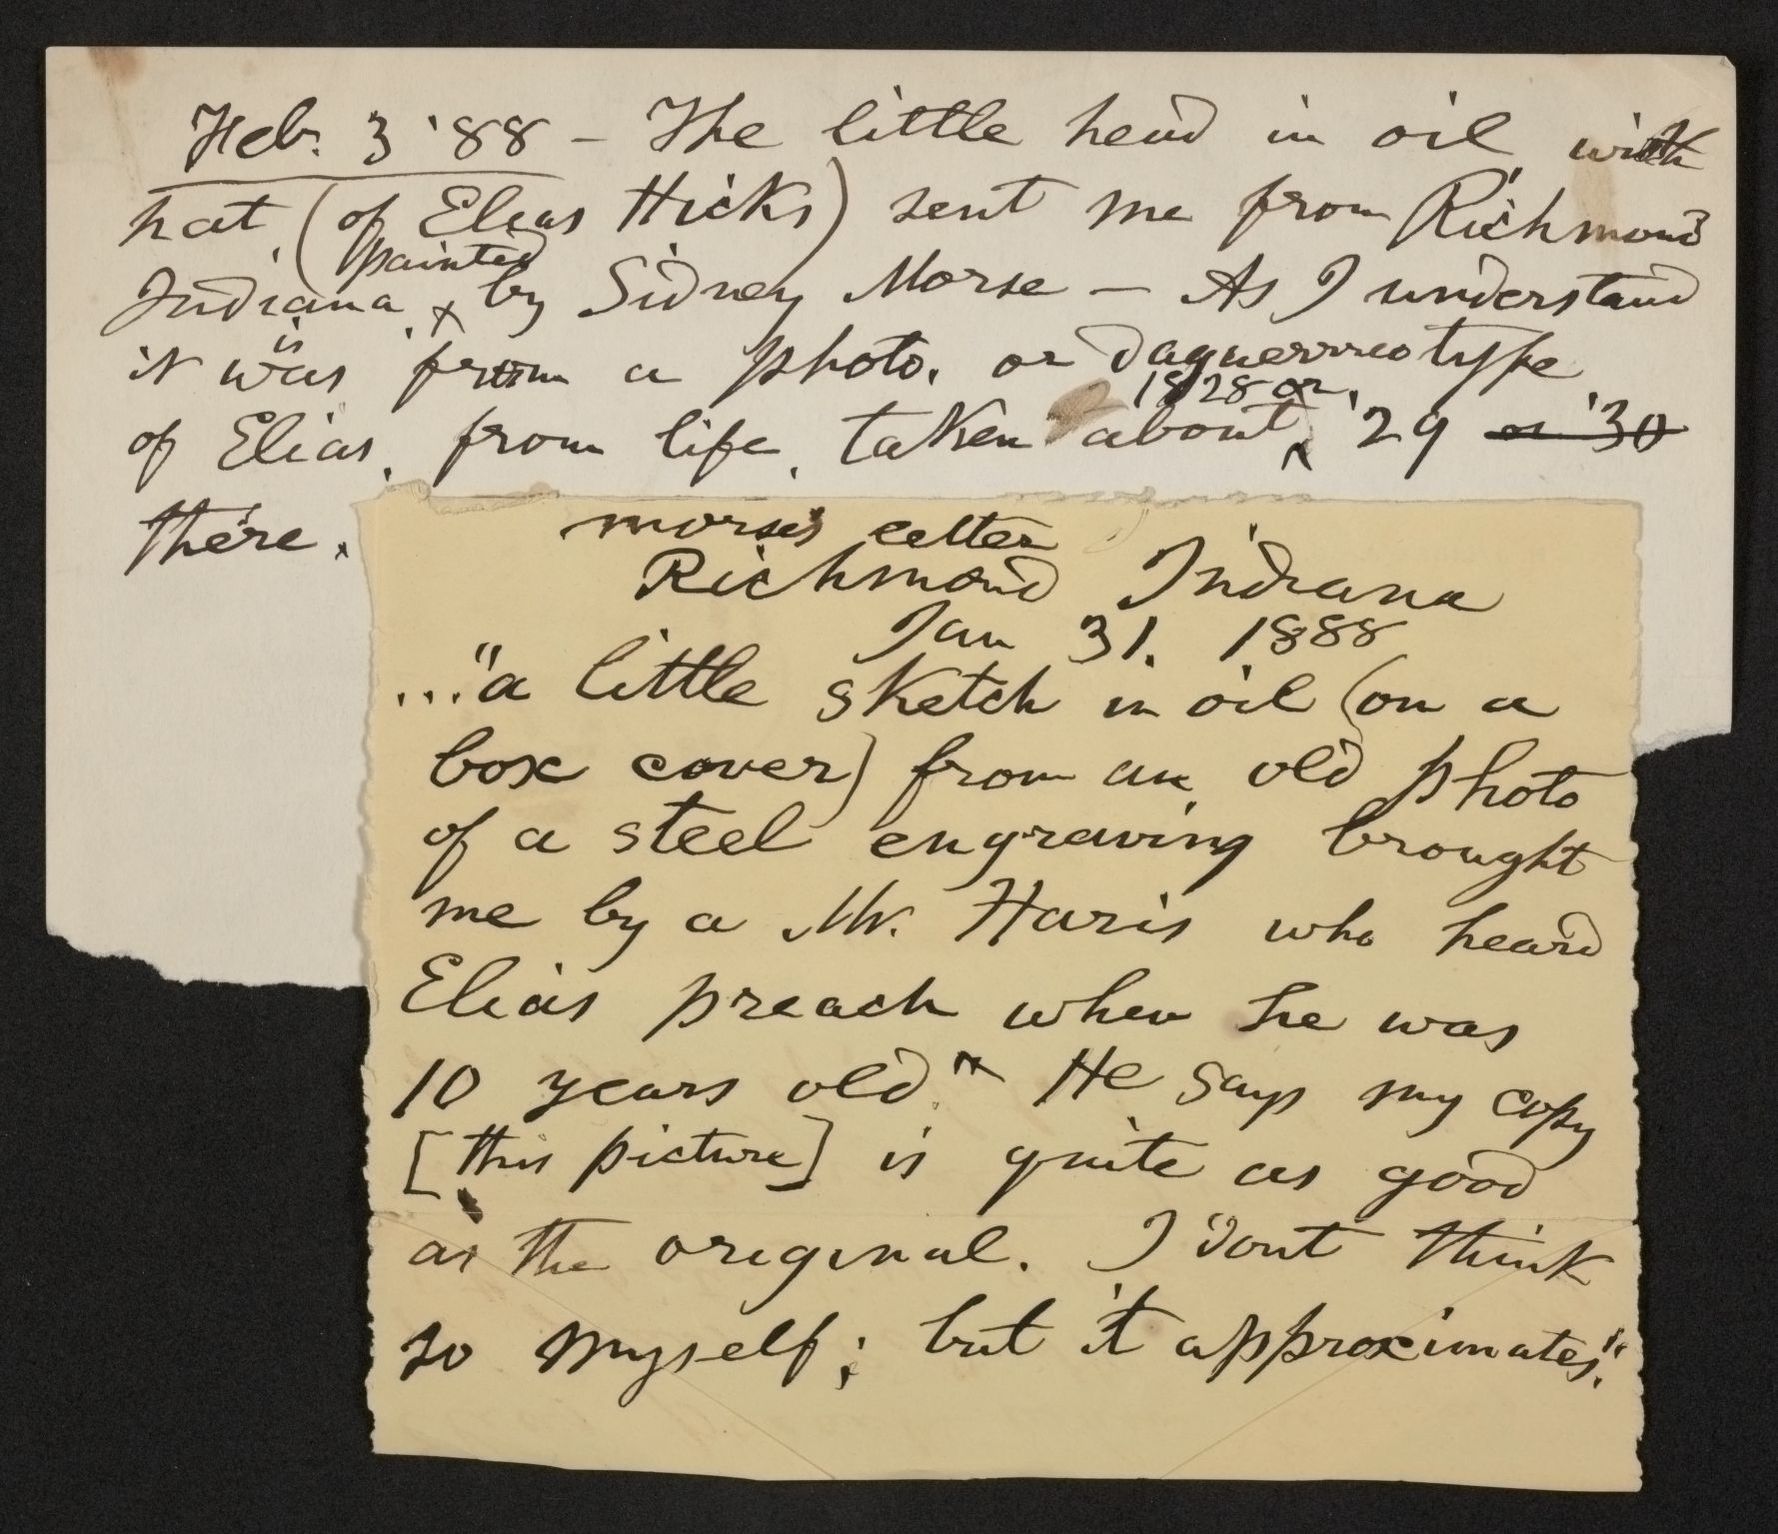 Feb. 3 '88 – The little head in oil with
hat, (of Elias Hicks) sent me from Richmond
Indiana, painted by Sidney Morse – As I understand
it was is from a photo. or daguerrreotype
of Elias, from life, taken about 1828 or '29 or '30
there.
Morse's letter
Richmond Indiana
Jan 31. 1888
..."a little sketch in oil (on a
box cover) from an old photo
of a steel engraving brought
me by a Mr. Haris who heard
Elias preach when he was
10 years old. He says my copy
[this picture] is quite as good
as the original. I dont think
so myself; but it approximates."